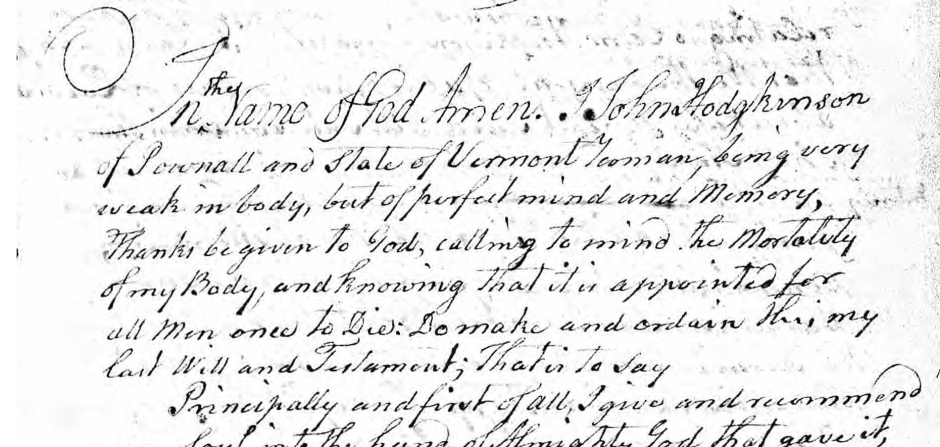 In the Name of God Amen. I John Hodgkinson
of Pownall and State of Vermont Yeoman, being very
weak in body, but of perfect mind and Memory,
Thanks be given to God, calling to mind the Mortality
of my Body, and knowing that it is appointed for
all Men once to Die: Do make and ordain this, my
last Will and Testament; That is to Say
Principally and first of all, I give and recommend
my Soul into the hand of Almighty God that gave it,